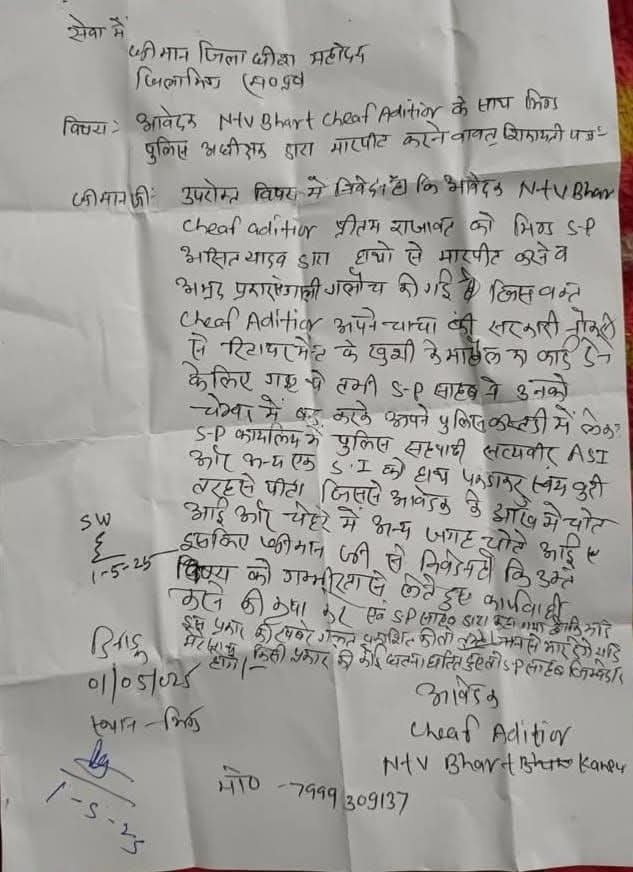 सेवा में
श्रीमान जिला धीश महोदय
जिला भिण्ड म०प्र०
विषय:- आवेदक N+V Bhart Cheaf Aditior के साथ भिण्ड
पुलिस अधीक्षक द्वारा मारपीट करने वावत् शिकायती पत्र
श्रीमान जी: उपरोक्त विषय में निवेदन है कि आवेदक N+V Bhart
Cheaf aditior प्रीतम राजावत को भिण्ड S-P
असित यादव द्वारा हाथो से मारपीट करने व
अभद्र गाली गलोच की गई है जिस वक्त
Cheaf Aditior अपने चाचा की सरकारी नौकरी
से रिटायरमेंट के खुशी के का कार्ड देने
के लिए गए थे तभी S-P साहब ने उनको
चेम्बर में बन्द करके अपने पुलिस कस्टडी में लेकर
S-P कार्यालय में पुलिस सत्यवीर ASI
और अन्य एक S.I को हाथ पकडाकर स्वयं बुरी
तरह से पीटा जिससे आवेदक के आँख में चोट
आई और चेहरे में अन्य जगह चोटे आई है
इसलिए श्रीमान जी से निवेदन है कि उक्त
विषय को गम्भीरता से लेते हुए कार्यवाही
करने की कृपा करे एवं S P साहब द्वारा कहा गया
इस प्रकार की खबर प्रकाशित की तो जान से मार देंगे यदि
मेरे साथ किसी प्रकार की कोई घटना घटित होती S P साहब
होगे।-
SW
1-5-25
दिनांक
01/05/025
स्थान - भिण्ड
1-5-25
आवेदक
Cheaf Aditior
N+V Bhart
मो० - 7999309137